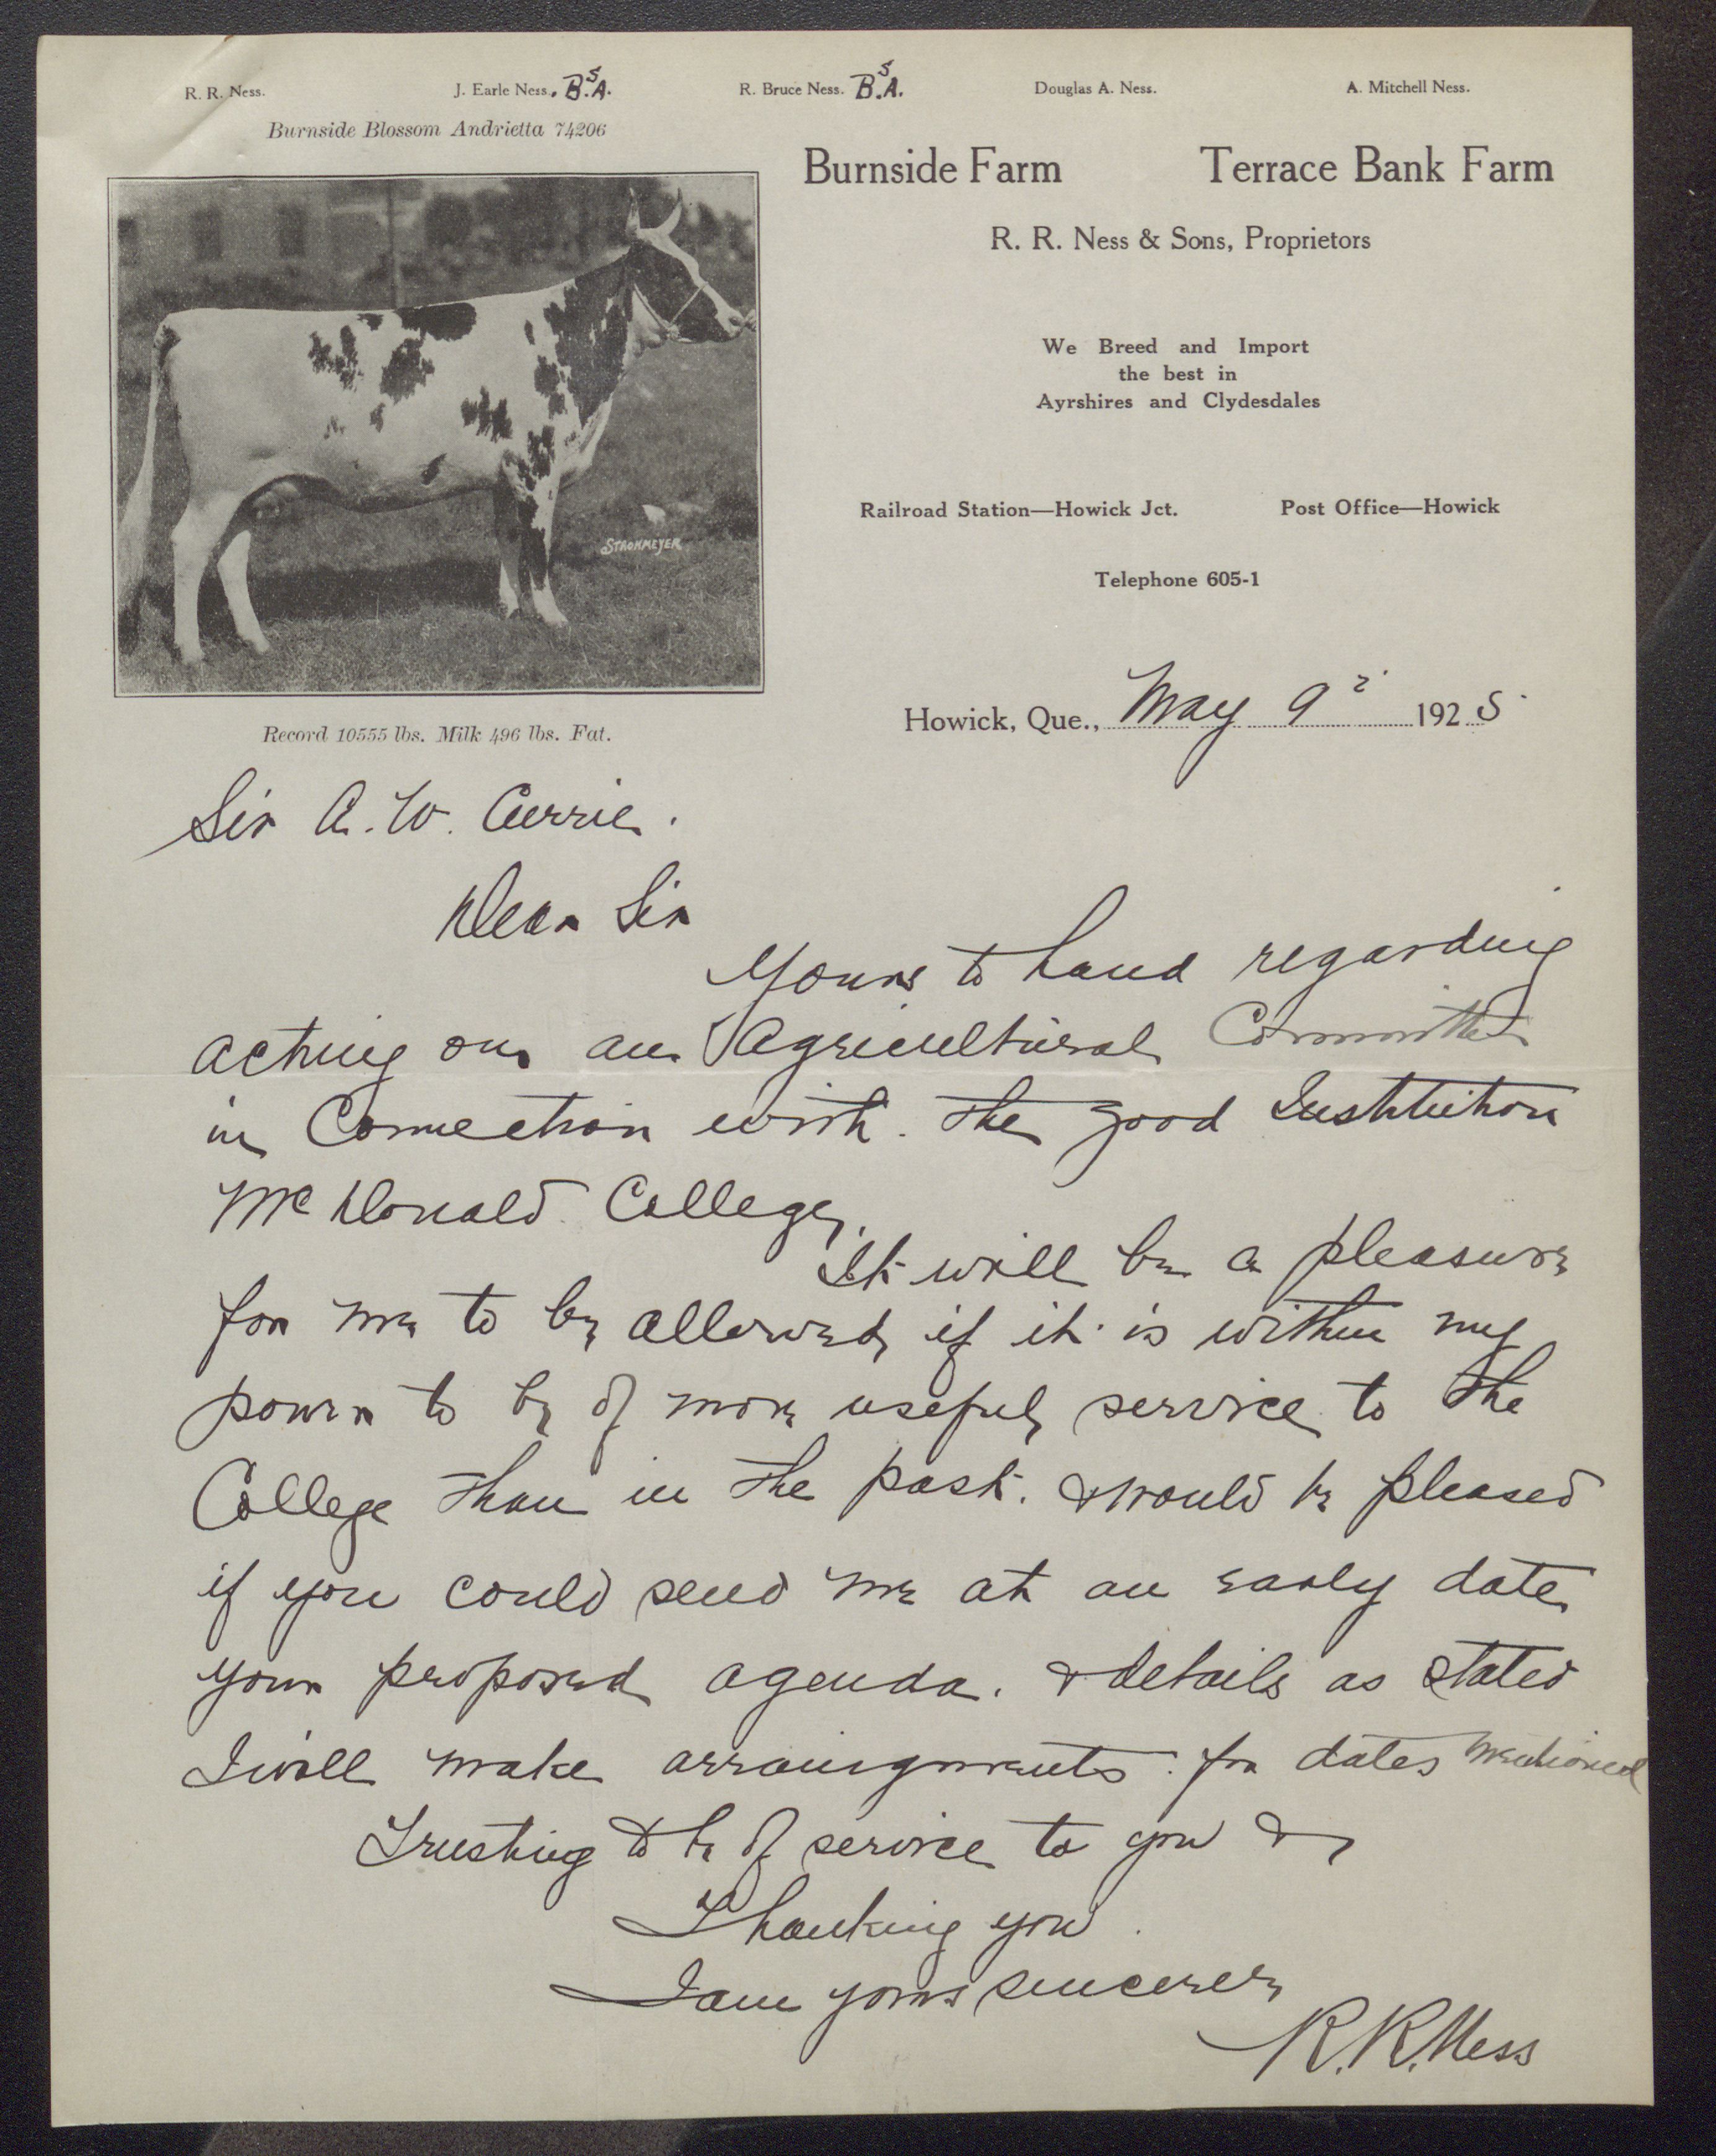 R. R. Ness. J. Earle Ness. B.S.A. R. Bruce Ness. B.S.A. Douglas A. Ness. A. Mitchell Ness.
Burnside Blossom Andrietta 74206
Burnside Farm Terrace Bank Farm
R. R. Ness & Sons, Proprietors
We Breed and Import
the best in
Ayrshires and Clydesdales
Railroad Station—Howick Jct. Post Office—Howick
STROHMEYER
Telephone 605-1
Howick, Que., May 9 1925
Record 10555 lbs. Milk 496 lbs. Fat.
Sir A. W. Currie.
Dear Sir
Yours to hand regarding
acting on an Agricultural Committee
in Connection with the good Institution
McDonald College.
It will be a pleasure
for me to be allowed, if it is within my
power to be of more useful service to the
College than in the past. & would be pleased
if you could send me at an early date
your proposed agenda. & details as stated
I will make arraingments for dates mentioned
Trusting to be of service to you &
Thanking you.
I am yours sincerely
R. R. Ness